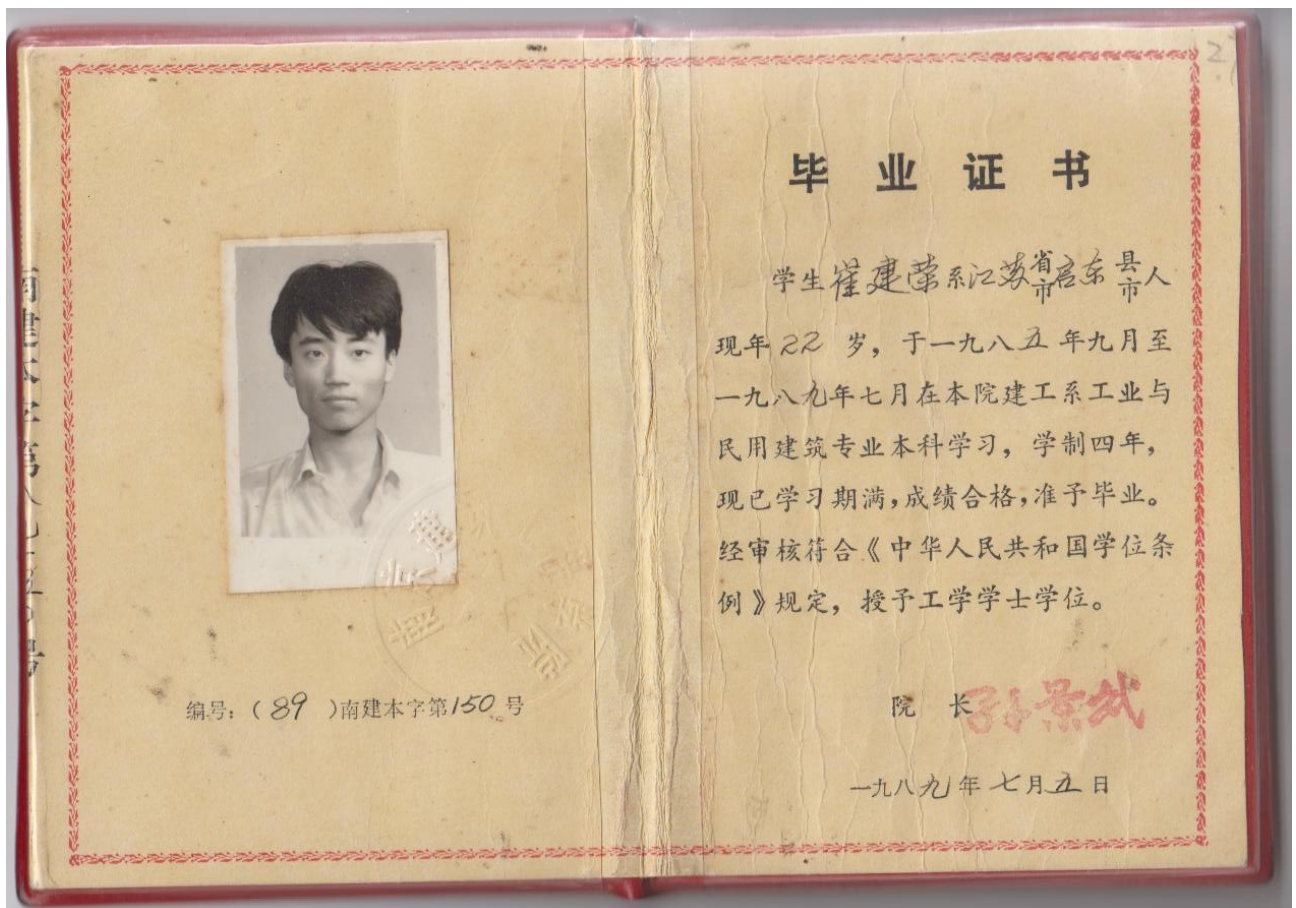 编号:(89)南建本字第150号
毕业证书
学生崔建荣系江苏省市启东县市人
现年22岁,于一九八五年九月至
一九八九年七月在本院建工系工业与
民用建筑专业本科学习,学制四年,
现已学习期满,成绩合格,准予毕业。
经审核符合《中华人民共和国学位条
例》规定,授予工学学士学位。
院长孙景武
一九八九年七月五日